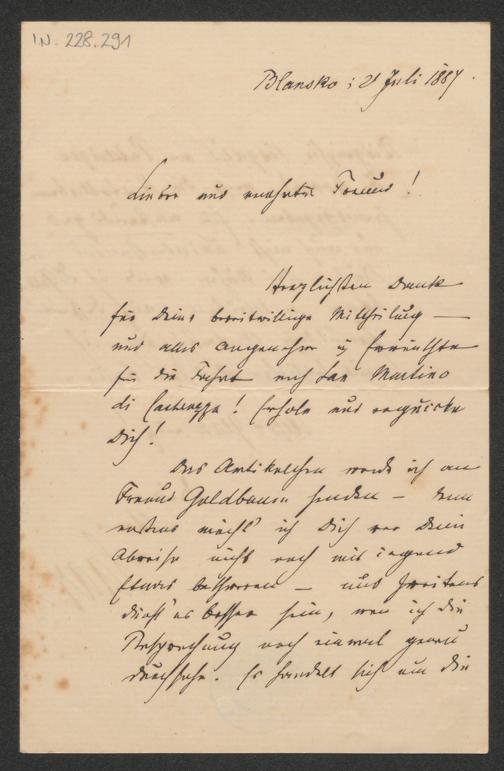 I.N. 228.291
Blansko; 21 Juli 1887.
Lieber und verehrter Freund!
Herzlichsten Dank
für Deine bereitwillige Mittheilung —
und alles Angenehme u Erwünschte
für die Fahrt nach San Martino
di Castrozza! Erhole und erquicke
Dich!
Das Artikelchen werde ich an
Freund Goldbaum senden — denn
erstens möcht' ich Dich vor Deiner
Abreise nicht noch mit irgend
Etwas beschweren — und zweitens
dürft' es besser sein, wenn ich die
Besprechung noch einmal genau
durchsehe. Es handelt sich um die